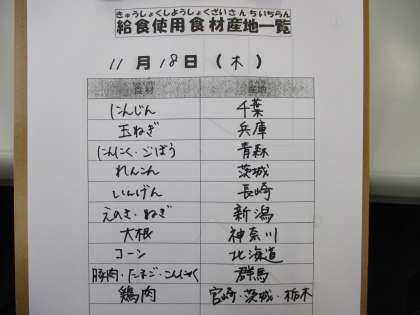 きゅうしょくしようしょくざいさんちいちらん
給食使用食材産地一覧
11月18日(木)
食材 産地
にんじん 千葉
玉ねぎ 兵庫
にんにく・ごぼう 青森
れんこん 茨城
いんげん 長崎
えのき・ねぎ 新潟
大根 神奈川
コーン 北海道
豚肉・たまご・こんにゃく 群馬
鶏肉 宮崎・茨城・栃木